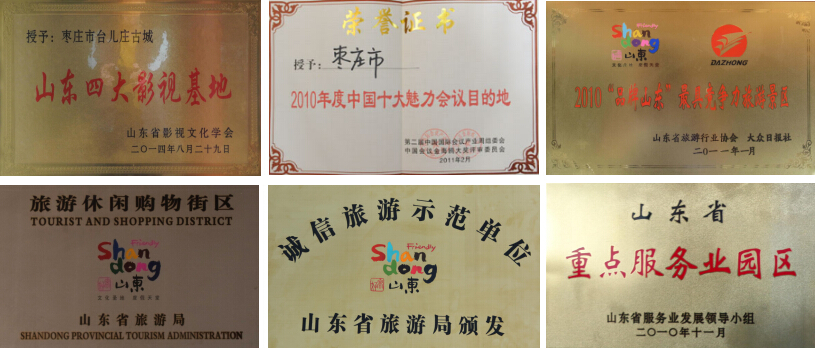 授予：枣庄市台儿庄古城
山东四大影视基地
山东省影视文化学会
二〇一四年八月二十九日
荣誉证书
授予：枣庄市
2010年度中国十大魅力会议目的地
第二届中国国际会议产业周组委会
中国会议金海鸥大奖评审委员会
2011年2月
Friendly
Shan
dong
山東
DAZHONG
2010“品牌山东”最具竞争力旅游景区
山东省旅游行业协会 大众日报社
二〇一一年一月
旅游休闲购物街区
TOURIST AND SHOPPING DISTRICT
Friendly
Shan
dong
山東
文化圣地 度假天堂
山东省旅游局
SHANDONG PROVINCIAL TOURISM ADMINISTRATION
诚信旅游示范单位
Friendly
Shan
dong
山東
山东省旅游局颁发
山东省
重点服务业园区
山东省服务业发展领导小组
二〇一〇年十一月